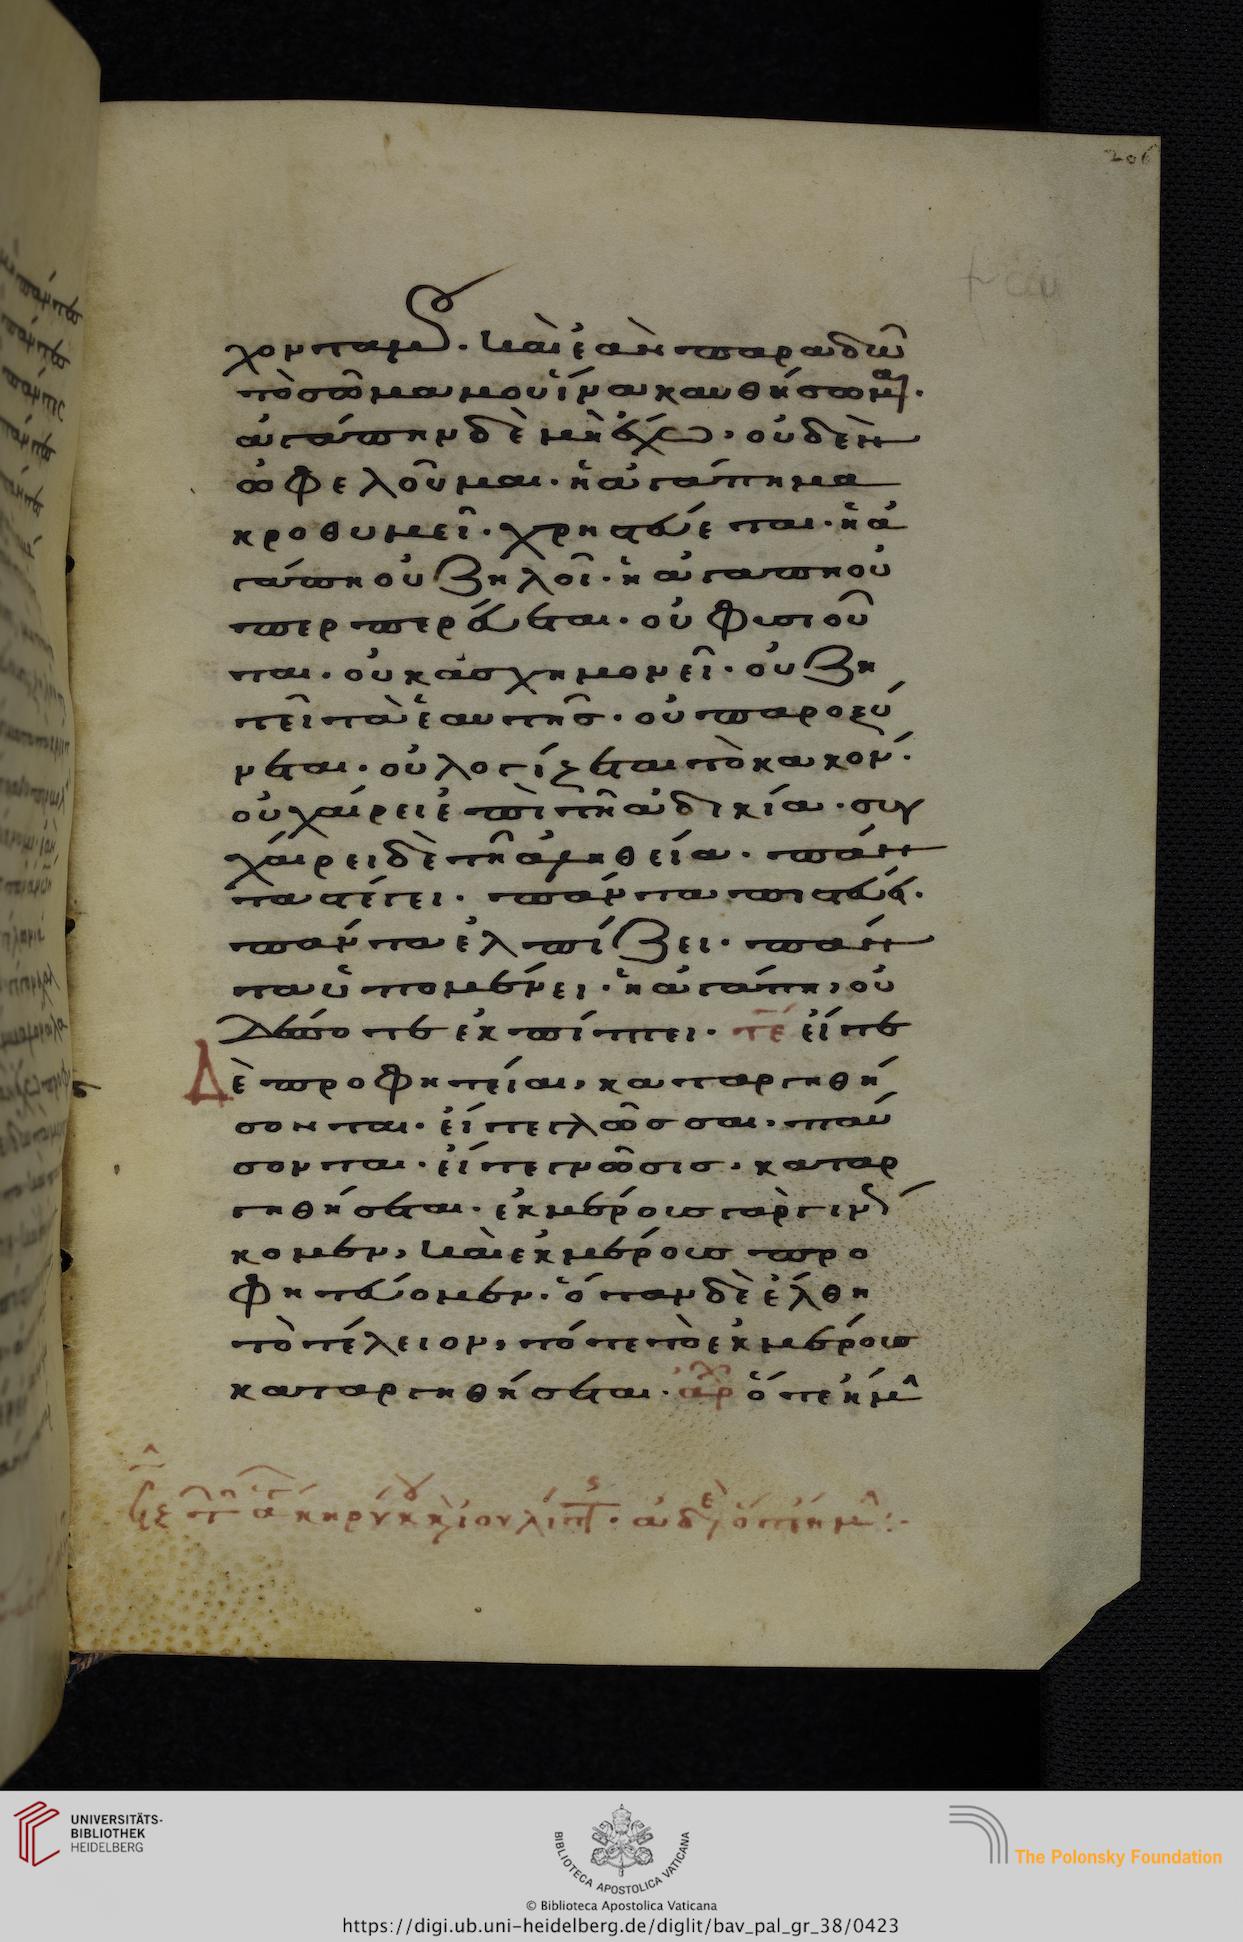 206
χοντά μου· καὶ ἐὰν παραδῶ
τὸ σῶμα μου ἵνα καυθήσωμαι·
ἀγάπην δὲ μὴ ἔχω· οὐδὲν
ὠφελοῦμαι· ἡ ἀγάπη μα
κροθυμεῖ· χρηστεύεται· ἡ ἀ
γάπη οὐ ζηλοῖ· ἡ ἀγαπη οὐ
περπερεύεται· οὐ φυσιοῦ
ται· οὐκ ἀσχημονεῖ· οὐ ζη
τεῖ τὰ ἑαυτῆς· οὐ παροξύ
νεται· οὐ λογίζεται τὸ κακόν·
οὐ χαίρει ἐπὶ τῆ ἀδικία· συγ
χαίρει δὲ τῆ ἀληθεία· πάν
τα στέγει· πάντα πιστεύει·
πάντα ἐλπίζει· πάν
τα ὑπομένει· ἡ ἀγάπη, οὐ
δέποτε ἐκπίπτει· τέ εἴτε
Δὲ προφητείαι, καταργηθή
σονται· εἴτε γλῶσσαι· παύ
σονται· εἴτε γνῶσις· καταρ
γηθήσεται· ἐκ μέρους γὰρ γινώ
κομεν, καὶ ἐκ μέρους προ
φητεύομεν· ὅταν δὲ ἔλθη
τὸ τέλειον, τότε τὸ ἐκ μέρους
καταργηθήσεται· ἀρχ ὅτε ἤμην
UNIVERSITÄTS-
BIBLIOTHEK
HEIDELBERG
BIBLIOTECA APOSTOLICA VATICANA
The Polonsky Foundation
© Biblioteca Apostolica Vaticana
https://digi.ub.uni-heidelberg.de/diglit/bav_pal_gr_38/0423